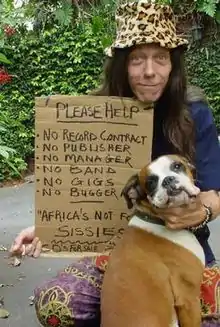 PLEASE HELP
· NO RECORD CONTRACT
· NO PUBLISHER
· NO MANAGER
· NO BAND
· NO GIGS
· NO BUGGER A
"AFRICA'S NOT FO
SISSIES
CD'S FOR SALE